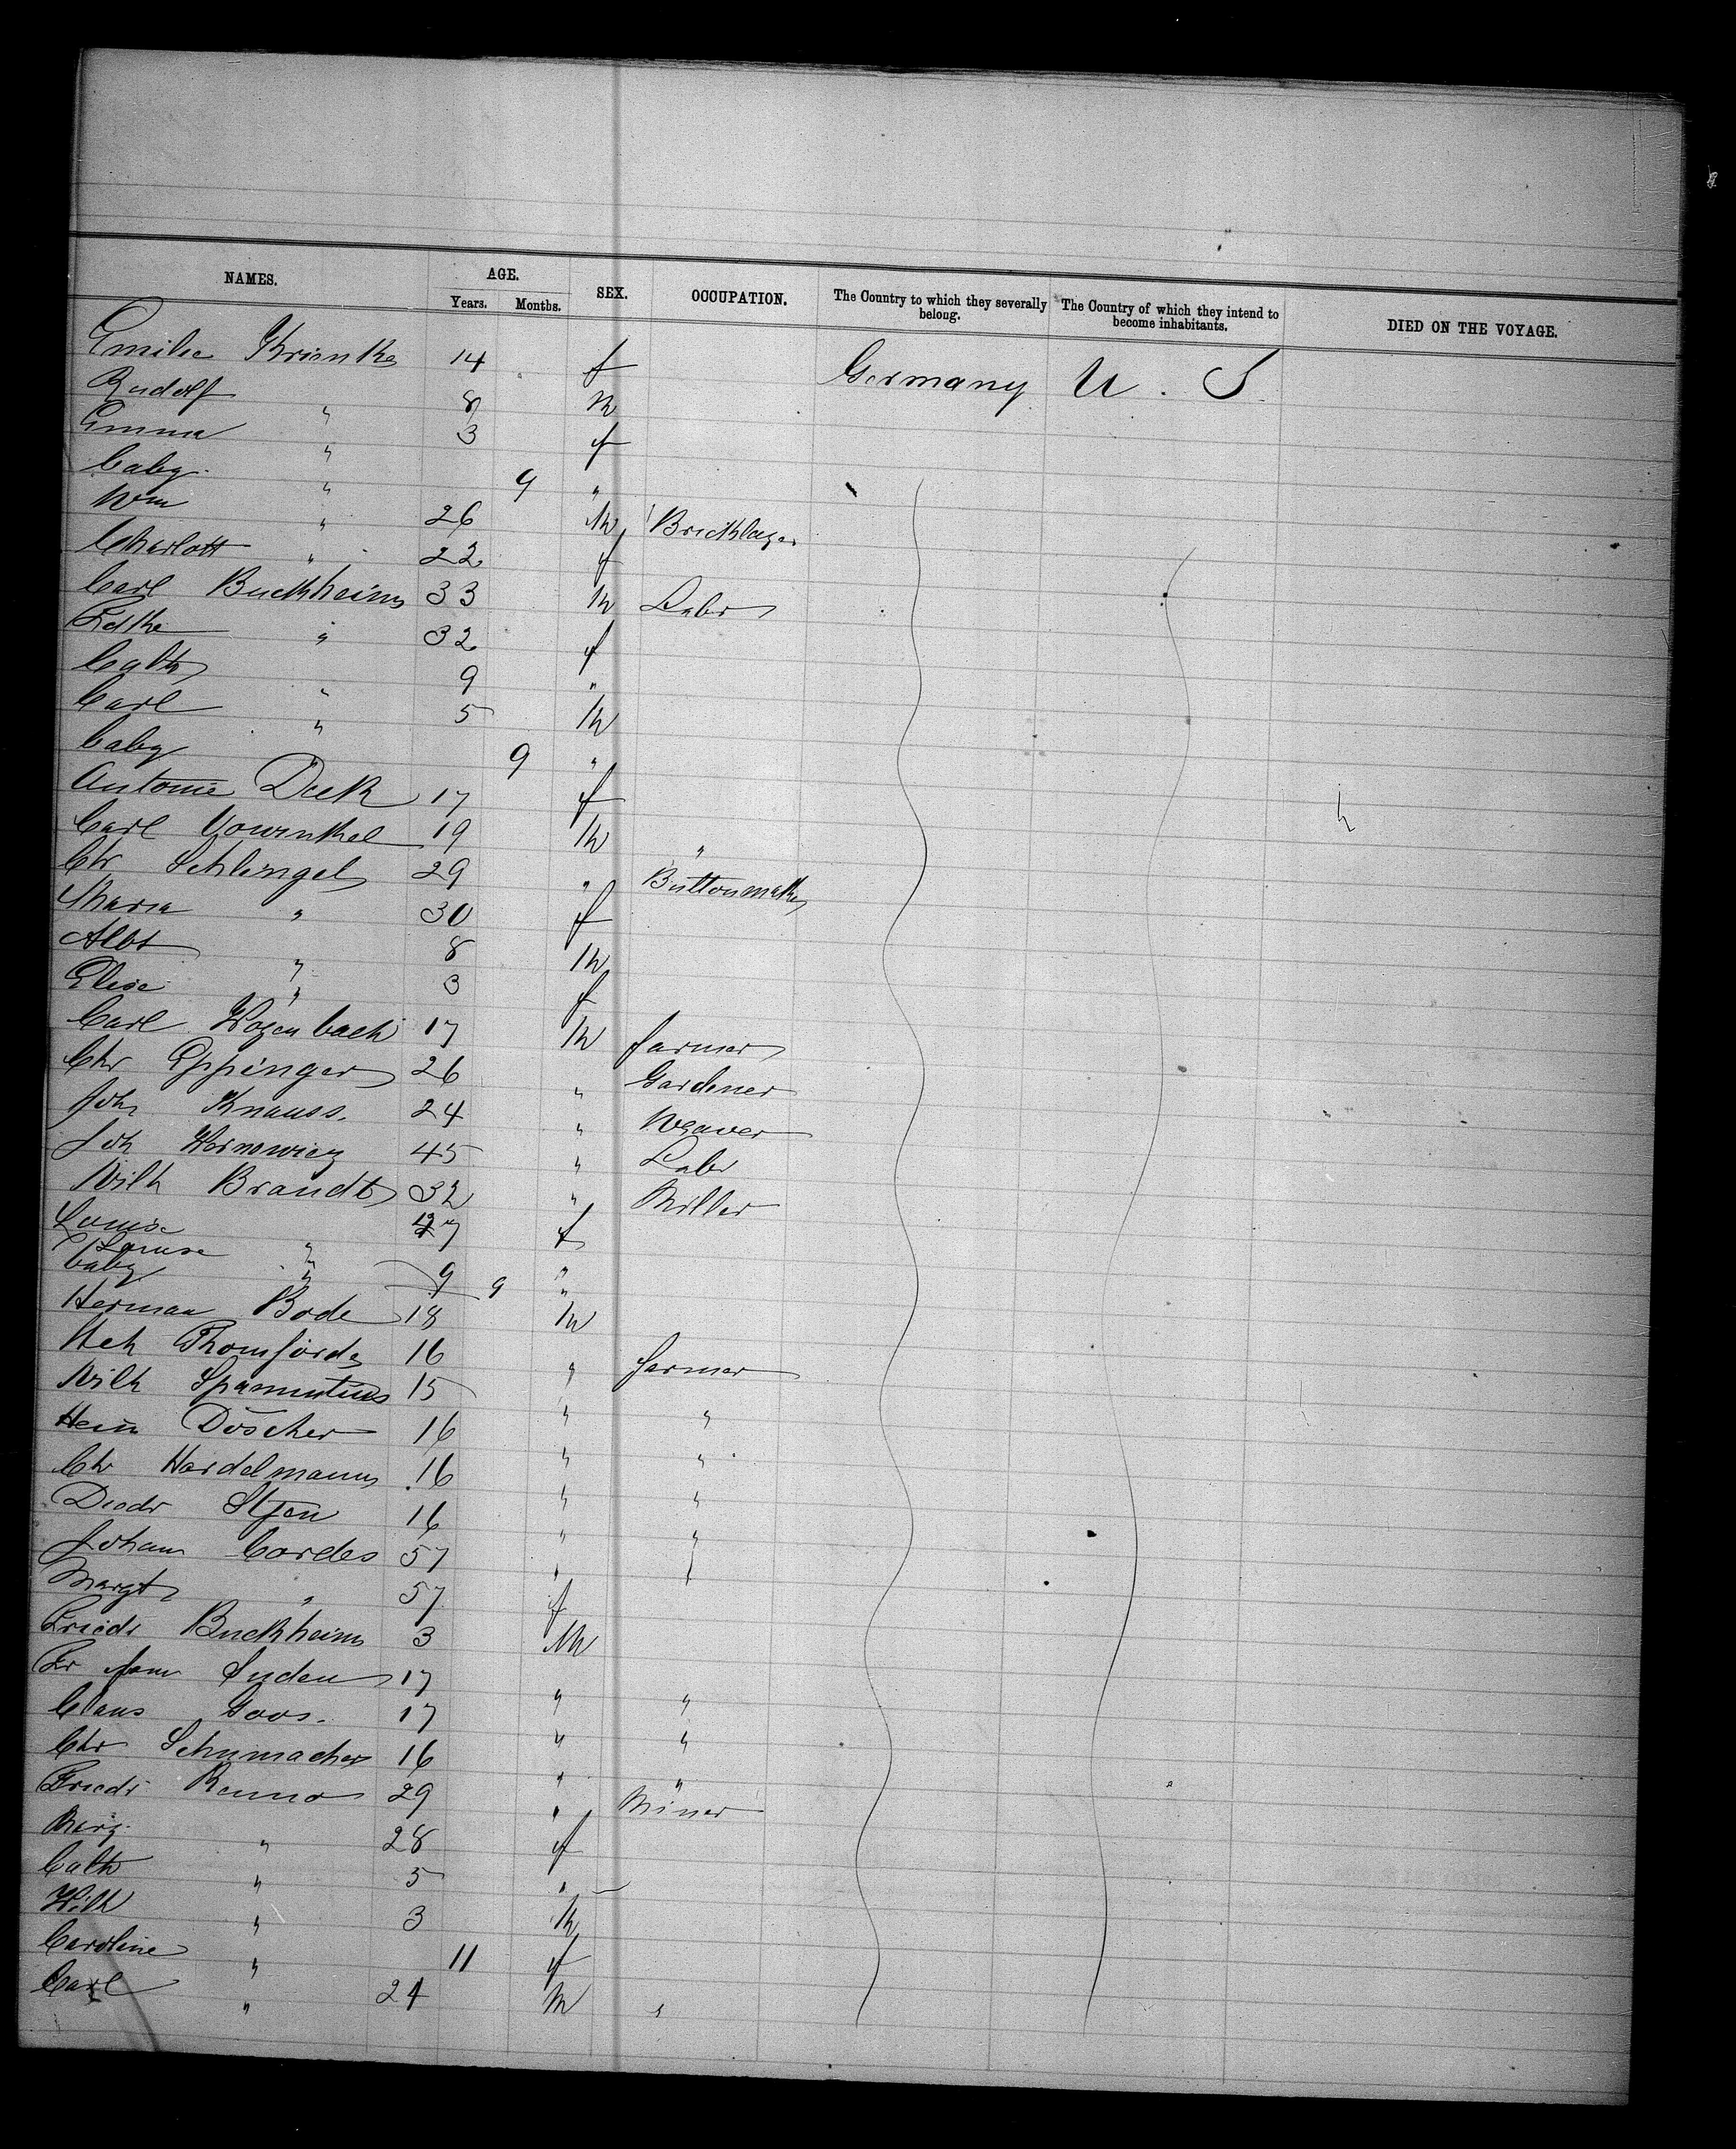 NAMES. AGE. SEX. OCCUPATION. The Country to which they severally belong. The Country of which they intend to become inhabitants. DIED ON THE VOYAGE.
Years. Months.
Emilie Krienke 14 f Germany U. S
Rudolf " 8 M
Emma " 3 f
baby " 9 "
Wm " 26 M Bricklayer
Charlott " 22 f
Carl Buckheim 33 M Labr
32 f
Cath 9 "
Carl " 5 M
baby 9 "
Antonie Deck 17 f
Carl 19 M "
Chr Schlengel 29 " Buttonmaker
Maria " 30 f
Albt " 8 M
Elise " 3 f
Carl Hagenbach 17 M farmer
Chr Eppinger 26 " Gardener
Joh Knauss. 24 " Weaver
Joh 45 " Labr
Wilh Brandt 32 " Miller
Louise " 27 f
Louise " 9 "
baby " 9 "
Herman Bode 18 M
Hch Thomforde 16 " farmer
Wilh 15 " "
Hein Döscher 16 " "
Chr Hardelmann 16 " "
Diedr 16 " "
Johann Cordes 57 " "
Margt " 57 f
Friedr Buckheim 3 M
Fr Suden 17 " "
Claus Goos. 17 " "
Chr Schumacher 16 " "
Friedr Renno 29 " Miner
Marg. " 28 f
Cath " 5 "
Wilh " 3 M
Caroline " 11 f
Carl " 24 M "